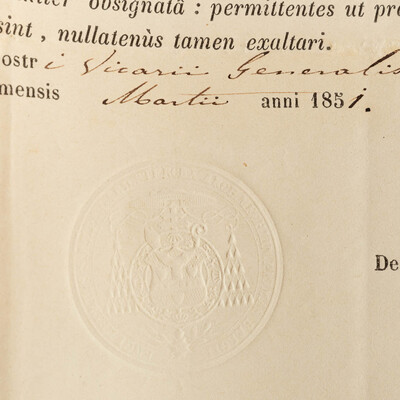 obsignatâ : permittentes ut
sint , nullatenùs tamen exaltari.
ostri Vicarii Generalis
mensis Martii anni 1851.
De